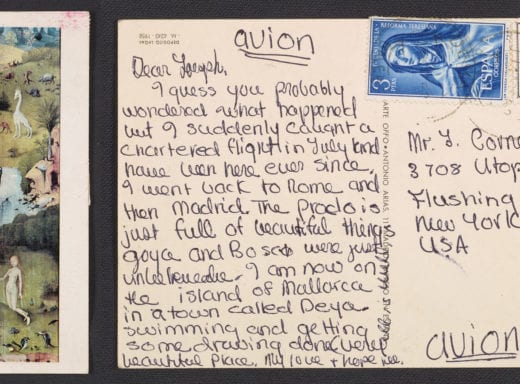 DEPOSITO LEGAL - M. 4210 - 1958
avion
Dear Joseph,
I guess you probably
wondered what happened
but I suddenly caught a
chartered flight in July and
have been here ever since.
I went back to Rome and
then Madrid. The Prado is
just full of beautiful things
goya and Bosch were just
unbelievable. I am now on
the island of Mallorca
in a town called Deya
swimming and getting
some drawing done. very
beautiful place. My love + hope
REFORMA TERESIANA
3
PTAS
ESPAÑA
CORREOS
ARTE OFFO • ANTONIO ARIAS
Mr. J. Corne
3708 Utop
Flushing
New York
USA
avion